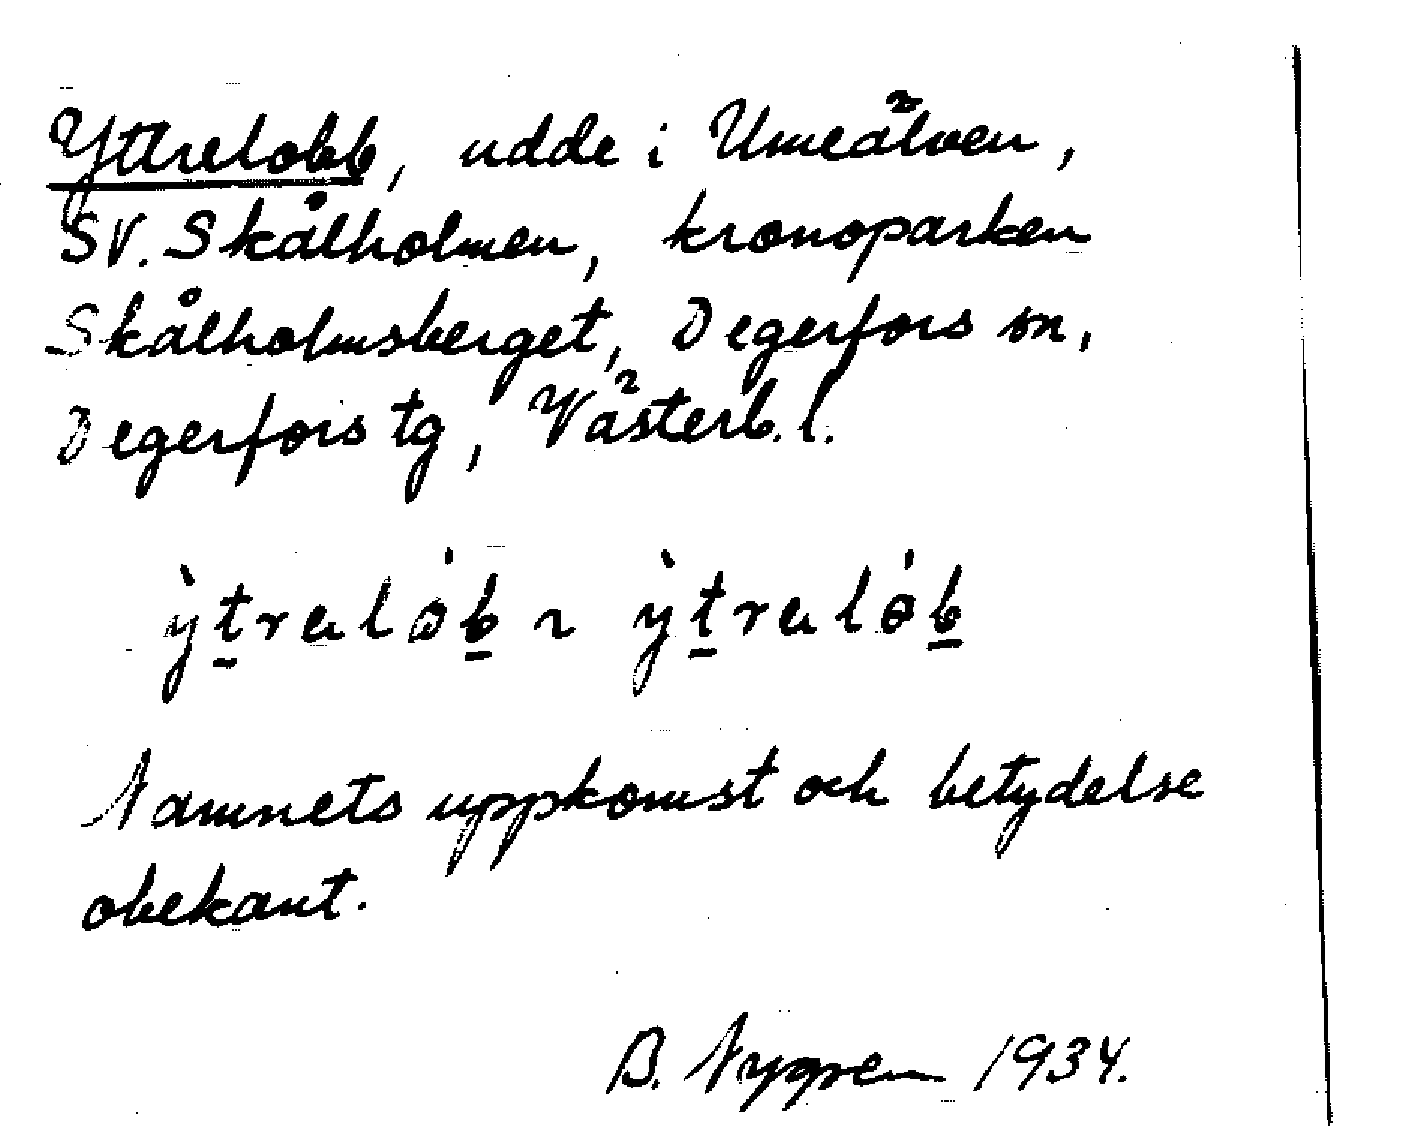 Yttrelobb, udde i Umeälven,
SV. Skålholmen, kronoparken
Skålholmsberget, Degerfors sn,
Degerfors tg, Västerb. l.
ỳtrelòb ~ ỳtreløb
Namnets uppkomst och betydelse
obekant.
B. Nygren 1934.